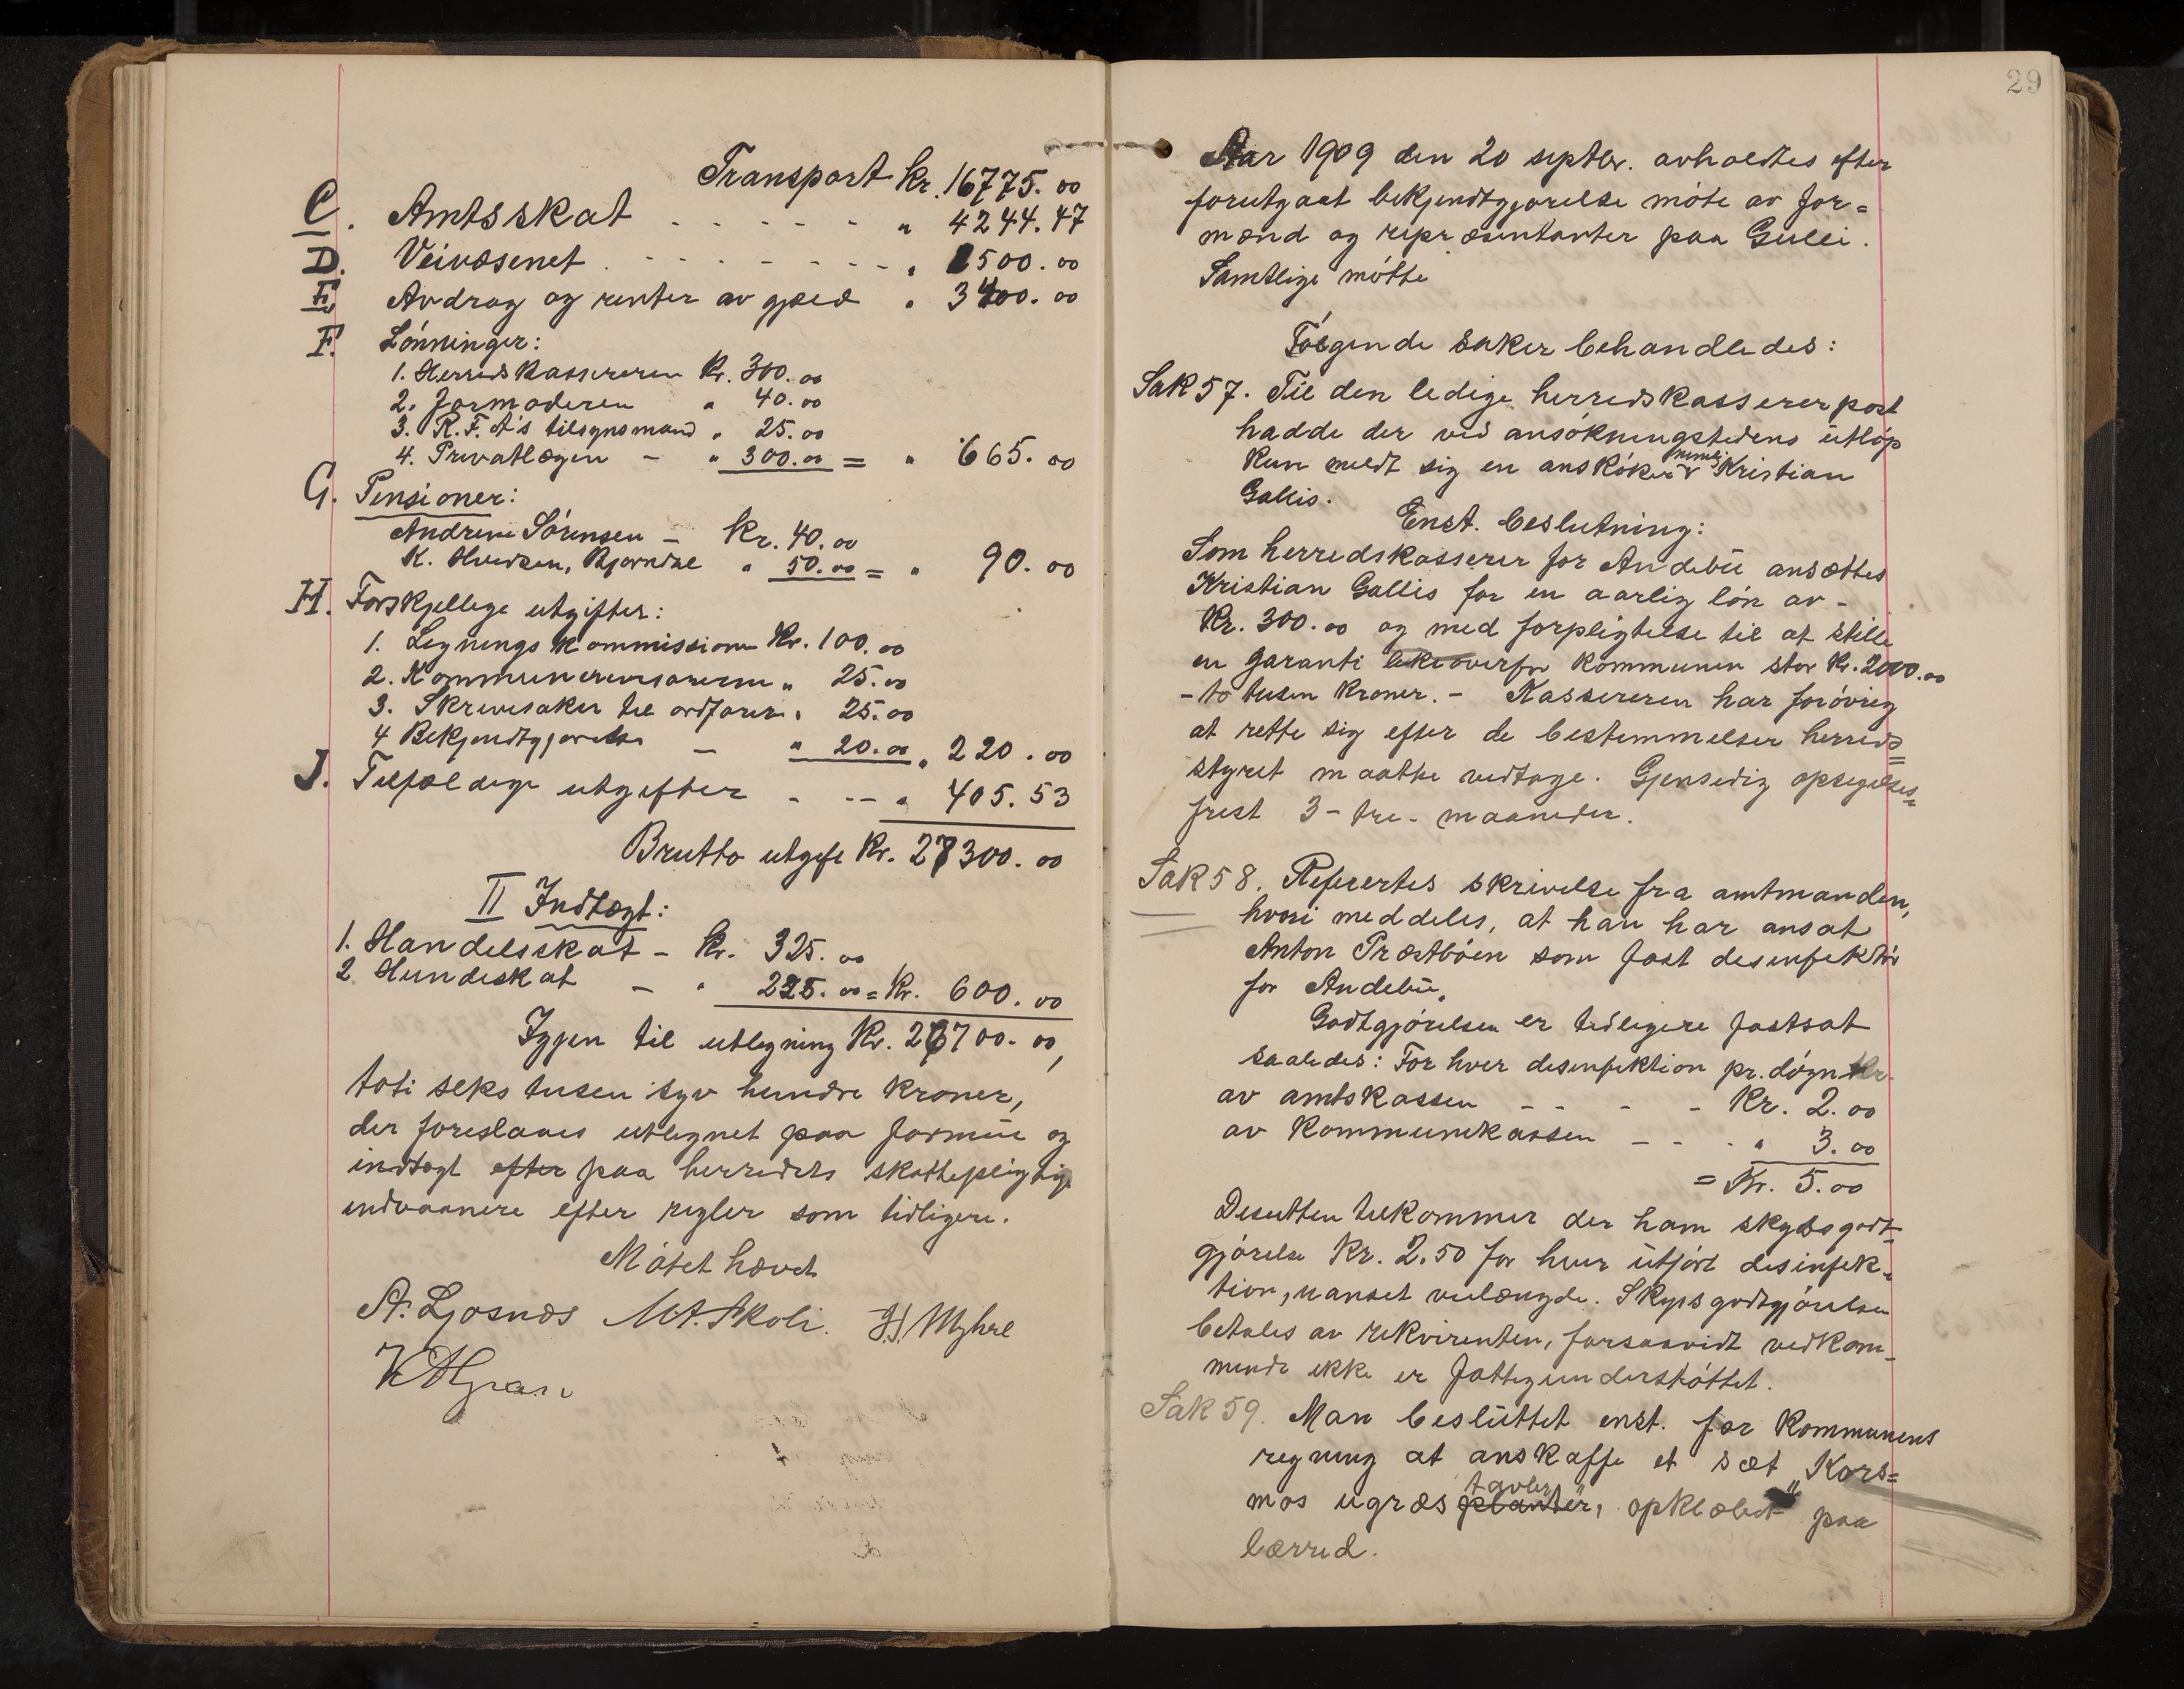 Transport Kr. 16775.00
C. Amtsskat - - - - - " 4244.47
D. Veivæsenet - - - - - - - " 1500.00
E. Avdrag og renter av gjæld " 3400.00
F. Lønninger:
1. Herredskassereren Kr. 300.00
2. Jormoderen " 40.00
3. R.F.A's tilsynsmand " 25.00
4. Privatlægen - " 300.00 = " 665.00
G. Pensioner:
Andrine Sörensen - Kr. 40.00
K. Alvedsen, Bjørndal " 50.00 = " 90.00
H. Forskjellige utgifter:
1. Ligningskommissionen Kr. 100.00
2. Kommunerevisorerne " 25.00
3. Skrivesaker til ordfører " 25.00
4 Bekjendtgjørelse - " 20.00 " 220.00
J. Tilfældige utgifter - -- " 405.53
Brutto utgift Kr. 27300.00
II Indtægt:
1. Handelsskat - kr. 325.00
2 Hundeskat - " 225.00 = Kr. 600.00
Igjen til utlegning Kr. 26700.00,
toti seks tusen syv hundre kroner,
der foreslaaes utlignet paa formue og
indtægt efter paa herredets skattepligtige
indvaanere efter regler som tidligere.
Mötet hævet
A. Ljosnæs M.A. Skoli. H. Myhre
K A Gran
29
Aar 1909 den 20 septbr. avholdtes efter
forutgaat bekjendtgjørelse möte av for=
mænd og repræsentanter paa Gulli.
Samtlige mötte
Fölgende saker behandledes:
Sak 57. Til den ledige herredskassererpost
hadde der ved ansökningstidens utlöp
kun meldt sig en ansköker nemlig Kristian
Gallis.
Enst. beslutning:
Som herredskasserer for Andebu ansættes
Kristian Gallis for en aarlig lön av -
Kr. 300.00 og med forpligtelse til at stille
en garanti overfor kommunen stor Kr. 2000.00
- to tusen kroner. - Kassereren har forövrig
at rette sig efter de bestemmelser herreds=
styret maatte vedtage. Gjensidig opsigelses=
frist 3 - tre - maaneder.
Sak 58. Refertes skrivelse fra amtmanden,
hvori meddeles, at han har ansat
Anton Præstbøen som fast desinfektör
for Andebu.
Godtgjörelsen er tidligere fastsat
saaledes: For hver desinfektion pr. dögn kr.
av amtskassen - - - - Kr. 2.00
av kommunekassen - - - " 3.00
= Kr. 5.00
Desutten tilkommer der ham skydsgodt-
gjörelse Kr. 2.50 for hver utfört desinfek-
tion, uanset veilængde. Skydsgodtgjörelsen
betales av rekvirenten, forsaavidt vedkom-
mende ikke er fattigunderstöttet.
Sak 59. Man besluttet enst. for kommunens
regning at anskaffe et sæt "Kors=
mos ugræsplanter tavler", opklæbet paa
lærred.